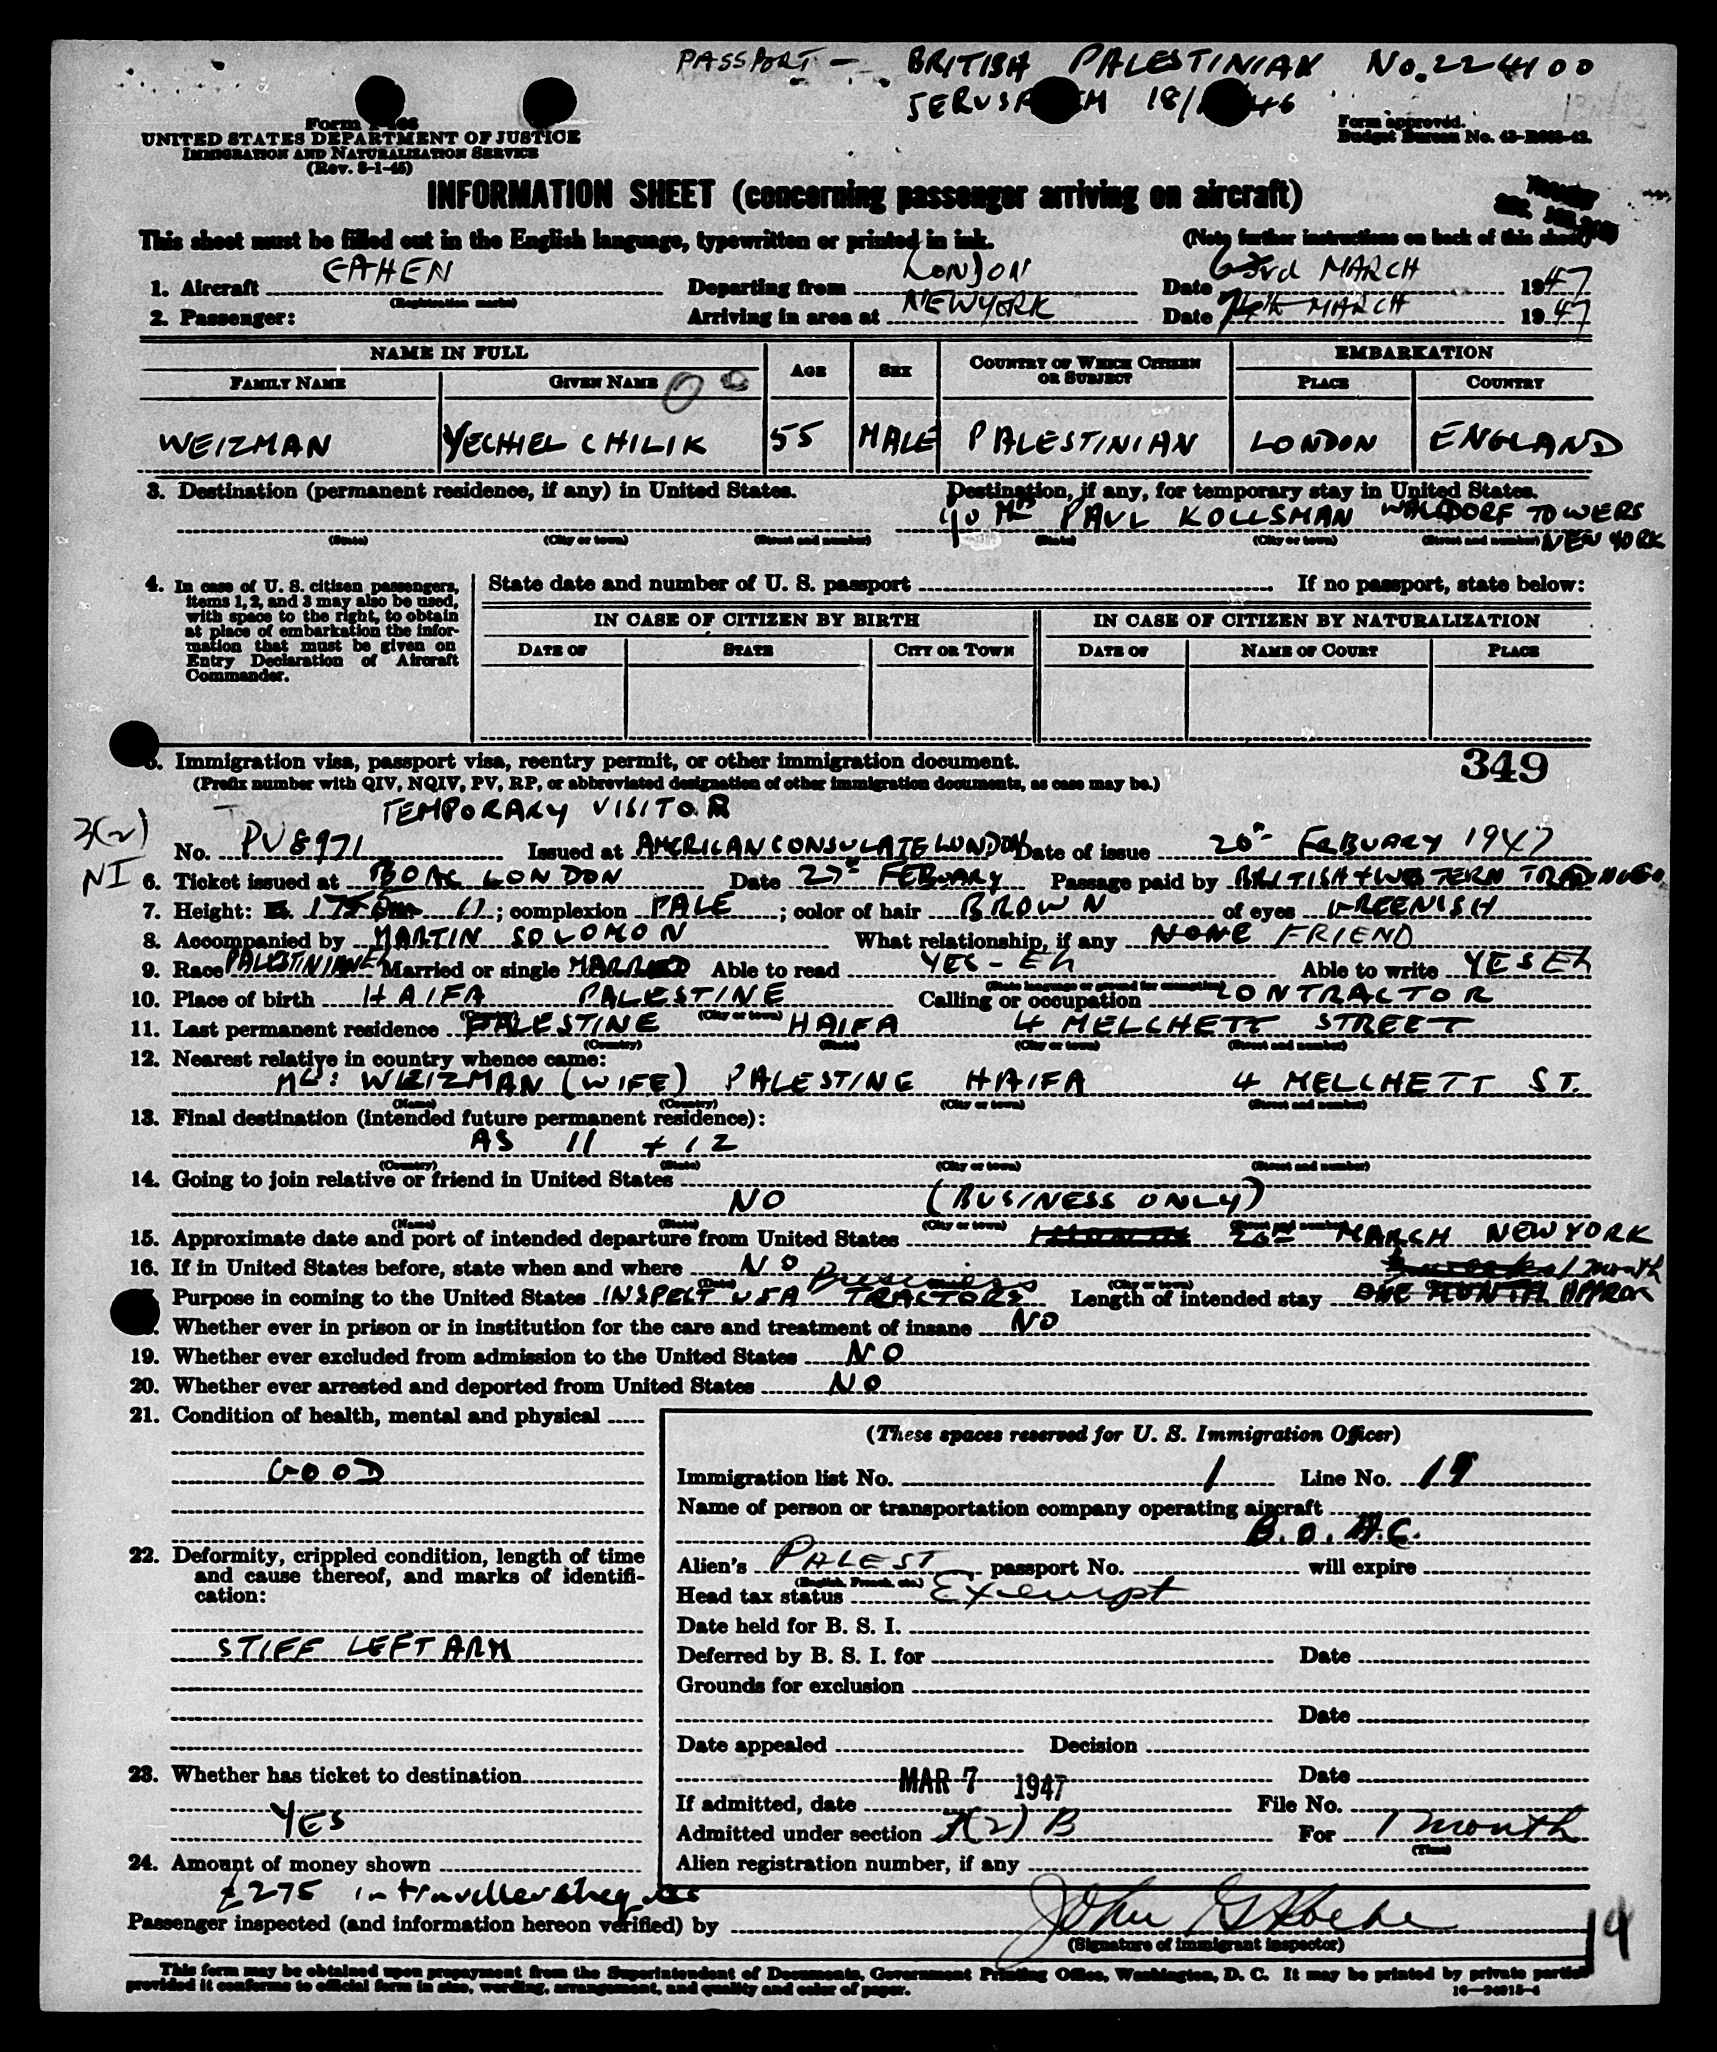 PASSPORT - BRITISH PALESTINIAN No. 224100
JERUSALEM 18/ 46
Form
UNITED STATES DEPARTMENT OF JUSTICE
IMMIGRATION AND NATURALIZATION SERVICE
(Rev. 8-1-45)
Form approved.
Budget Bureau No.
INFORMATION SHEET (concerning passenger arriving on aircraft)
This sheet must be filled out in the English language, typewritten or printed in ink. (Note further instructions on back of this sheet)
1. Aircraft EAHEN Departing from LONDON Date MARCH 1947
(Registration marks)
2. Passenger: Arriving in area at NEWYORK Date MARCH 1947
NAME IN FULL AGE SEX COUNTRY OF WHICH CITIZEN OR SUBJECT EMBARKATION
FAMILY NAME GIVEN NAME PLACE COUNTRY
WEIZMAN YECHIEL CHILIK 55 MALE PALESTINIAN LONDON ENGLAND
3. Destination (permanent residence, if any) in United States. Destination, if any, for temporary stay in United States.
PAUL KOLLSMAN WALDORF TOWERS
(State) (City or town) (Street and number) (State) (City or town) (Street and number) NEW YORK
4. In case of U. S. citizen passengers, items 1, 2, and 3 may also be used, with space to the right, to obtain at place of embarkation the information that must be given on Entry Declaration of Aircraft Commander.
State date and number of U. S. passport If no passport, state below:
IN CASE OF CITIZEN BY BIRTH IN CASE OF CITIZEN BY NATURALIZATION
DATE OF STATE CITY OR TOWN DATE OF NAME OF COURT PLACE
Immigration visa, passport visa, reentry permit, or other immigration document. 349
(Prefix number with QIV, NQIV, PV, RP, or abbreviated designation of other immigration documents, as case may be.)
TEMPORARY VISITOR
3(2)
NI
No. PV8971 Issued at AMERICAN CONSULATE LONDON Date of issue 20th FEBUARY 1947
6. Ticket issued at BOAC LONDON Date 27th FEBUARY Passage paid by BRITISH & WESTERN TRADING Co
7. Height: 11; complexion PALE; color of hair BROWN of eyes GREENISH
8. Accompanied by MARTIN SOLOMON What relationship, if any NONE FRIEND
9. Race PALESTINIAN Married or single MARRIED Able to read YES - Eh Able to write YES Eh
(State language or ground for exemption)
10. Place of birth HAIFA PALESTINE Calling or occupation CONTRACTOR
(Country) (City or town)
11. Last permanent residence PALESTINE HAIFA 4 MELCHETT STREET
(Country) (State) (City or town) (Street and number)
12. Nearest relative in country whence came:
WEIZMAN (WIFE) PALESTINE HAIFA 4 MELCHETT ST.
(Name) (Country) (City or town) (Street and number)
13. Final destination (intended future permanent residence):
AS 11 + 12
(Country) (State) (City or town) (Street and number)
14. Going to join relative or friend in United States
NO (BUSINESS ONLY)
(Name) (State) (City or town) (Street and number)
15. Approximate date and port of intended departure from United States 20th MARCH NEW YORK
16. If in United States before, state when and where NO
(Date) (City or town) 1 month
Business
Purpose in coming to the United States INSPECT USA TRACTORS Length of intended stay ONE MONTH APPROX
Whether ever in prison or in institution for the care and treatment of insane NO
19. Whether ever excluded from admission to the United States NO
20. Whether ever arrested and deported from United States NO
21. Condition of health, mental and physical
GOOD
22. Deformity, crippled condition, length of time and cause thereof, and marks of identification:
STIFF LEFT ARM
23. Whether has ticket to destination
YES
24. Amount of money shown
£275 in travellers cheques
(These spaces reserved for U. S. Immigration Officer)
Immigration list No. 1 Line No. 19
Name of person or transportation company operating aircraft
B.O.A.C.
Alien's PALEST passport No. will expire
(English, French, etc.)
Head tax status Exempt
Date held for B. S. I.
Deferred by B. S. I. for Date
Grounds for exclusion
Date
Date appealed Decision
Date
MAR 7 1947
If admitted, date File No.
Admitted under section 3(2) B For 1 month
(Time)
Alien registration number, if any
Passenger inspected (and information hereon verified) by John G
(Signature of immigrant inspector)
14
This form may be obtained upon prepayment from the Superintendent of Documents, Government Printing Office, Washington, D. C. It may be printed by private parties
provided it conforms to official form in size, wording, arrangement, and quality and color of paper.